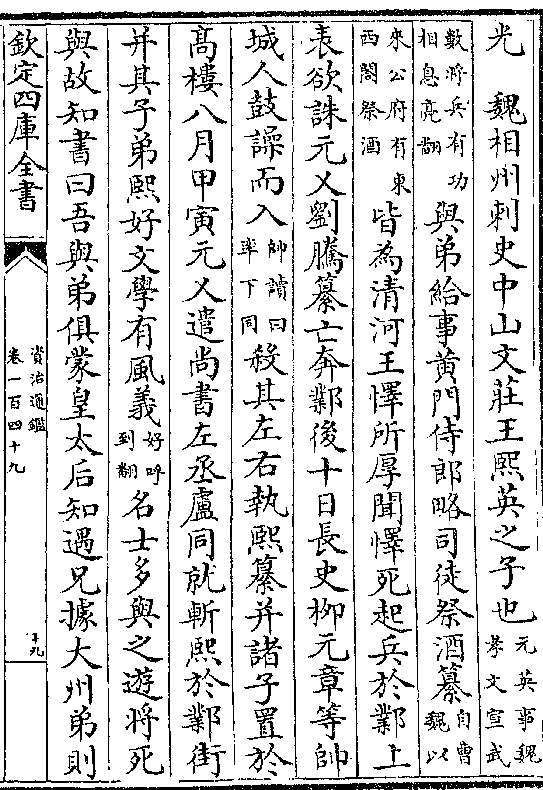 光　魏相州刺史中山文莊王熙英之子也元英事魏孝文宣武
數將兵有功相息亮翻與弟給事黄門侍郎略司徒祭酒纂自曹魏以
來公府有東西閤祭酒皆為清河王懌所厚聞懌死起兵於鄴上
表欲誅元乂劉騰纂亡奔鄴後十日長史柳元章等帥
城人鼓譟而入帥讀曰率下同殺其左右執熙纂并諸子置於
髙樓八月甲寅元乂遣尚書左丞盧同就斬熙於鄴街
并其子弟熙好文學有風義好呼到翻名士多與之遊將死
與故知書曰吾與弟俱蒙皇太后知遇兄據大州弟則
欽定四庫全書
資治通鑑
卷一百四十九
十九